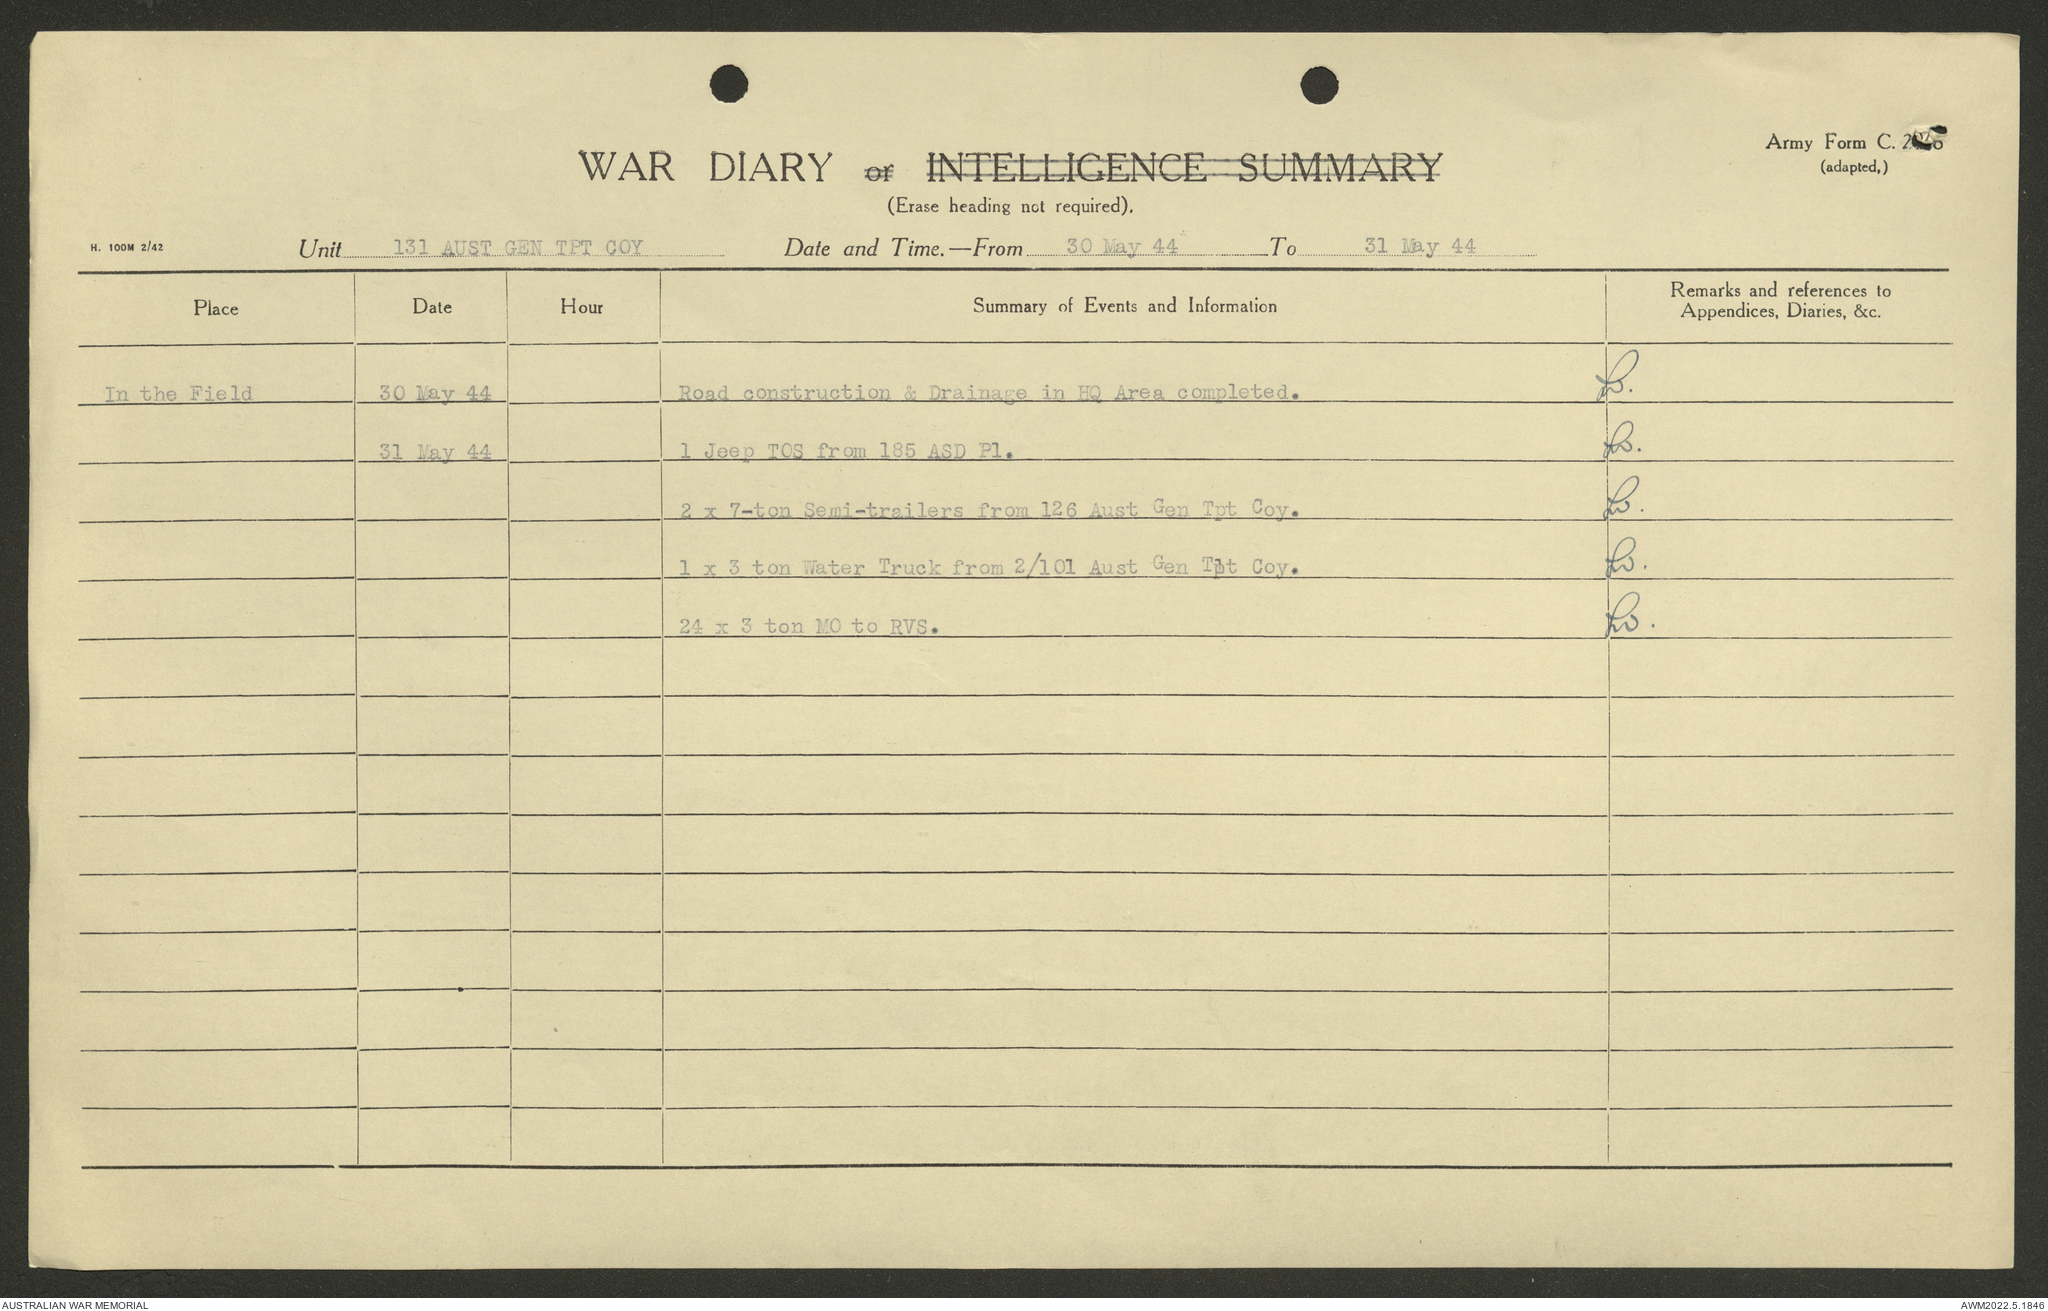 Army Form C.
(adapted,)
WAR DIARY or INTELLIGENCE SUMMARY
(Erase heading not required).
H. 100M 2/42
Unit 131 AUST GEN TPT COY Date and Time.—From 30 May 44 To 31 May 44
Place Date Hour Summary of Events and Information Remarks and references to
Appendices, Diaries, &c.
In the Field 30 May 44 Road construction & Drainage in HQ Area completed.
31 May 44 1 Jeep TOS from 185 ASD Pl.
2 x 7-ton Semi-trailers from 126 Aust Gen Tpt Coy.
1 x 3 ton Water Truck from 2/101 Aust Gen Tpt Coy.
24 x 3 ton MO to RVS.
AUSTRALIAN WAR MEMORIAL AWM2022.5.1846